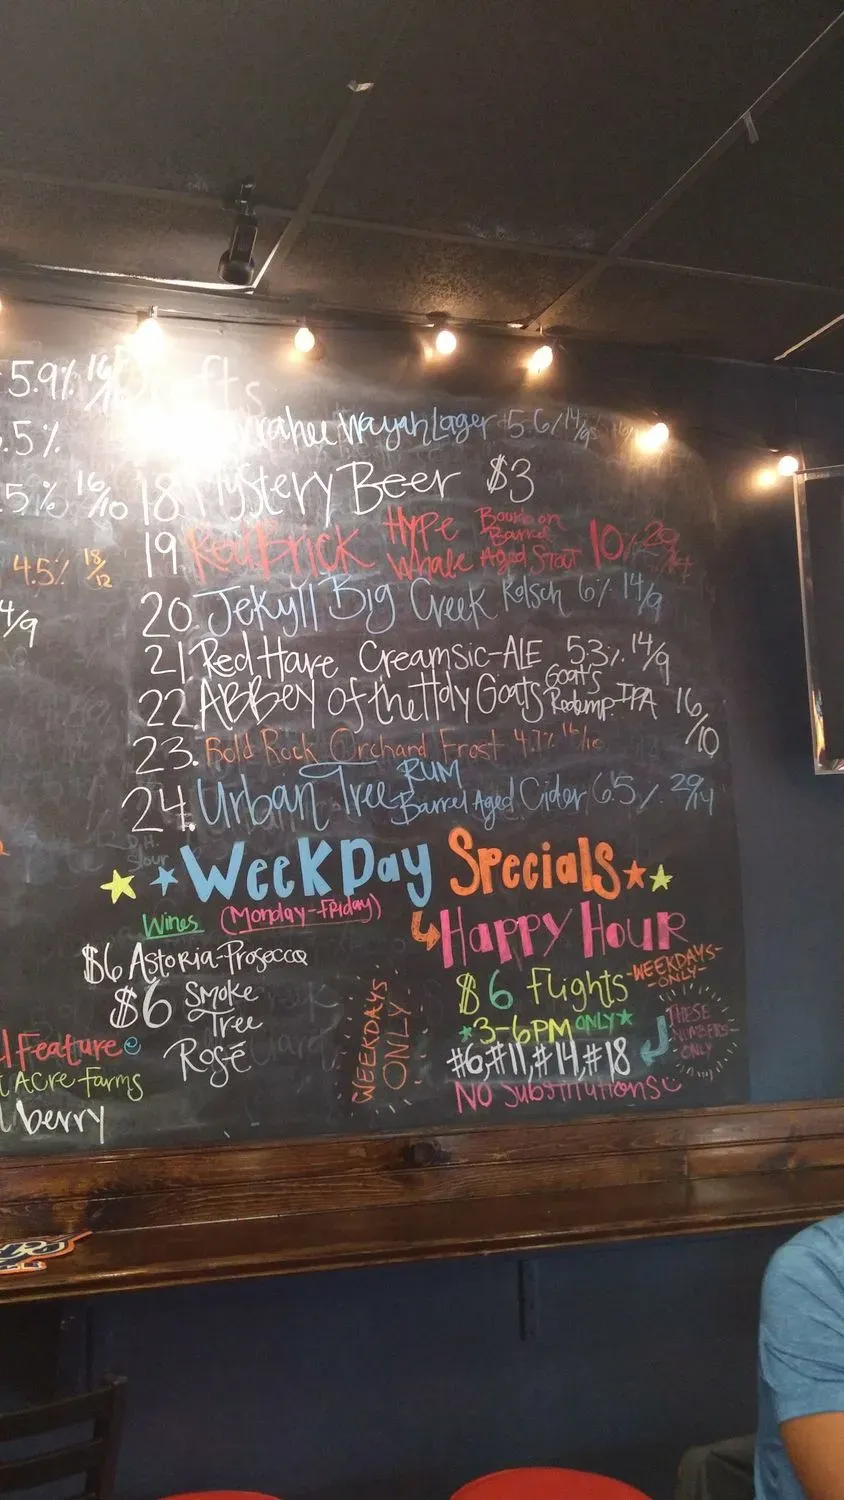 5.9% 16/10 Drafts
.5% Wayah Lager 5.6% 14/9
5% 16/10 18 Mystery Beer $3
19. Red Brick Hype Whale Bourbon Barrel Aged Stout 10%
4.5% 18/12
4/9 20. Jekyll Big Creek Kolsch 6% 14/9
21. Red Hare Creamsic-ALE 5.3% 14/9
22. ABBEY of the Holy Goats Goat's Redemp. IPA 16/10
23. Bold Rock Orchard Frost 4.7% 16/10
24. Urban Tree RUM Barrel Aged Cider 6.5% 20/14
D.H. Sour
WeekDay Specials
Wines (Monday-Friday)
Happy Hour
$6 Astoria-Prosecco
$6 Smoke Tree Rosé
WEEKDAYS ONLY
$6 Flights -WEEKDAYS- -ONLY-
3-6PM ONLY
#6, #11, #14, #18
THESE NUMBERS ONLY
NO Substitutions
Feature
Acre Farms
berry